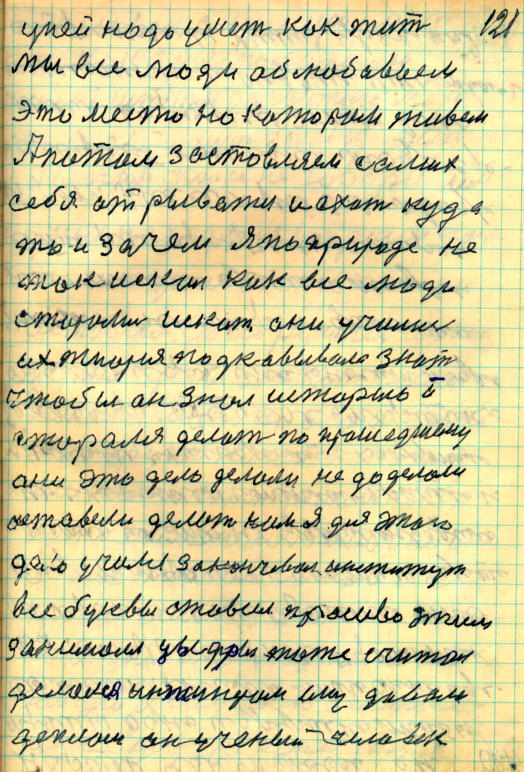 121
у ней надо умет как жит
мы все люди облюбаваем
это место на котором живем
А потом заставляем самих
себя отрывати и ехат куда
то и зачем я по природе не
так искал как все люди
старалис искат они училис
их тиория подказывала знат
чтобы он знал историю и
стараля делат по прошедшему
они это дело делали не доделали
оставели делат нам я для этого
дело училя закончевал институт
все буквы ставил красиво этим
занимался цыфры тоже считал
делался инжинером ему давали
деплом он ученый человек